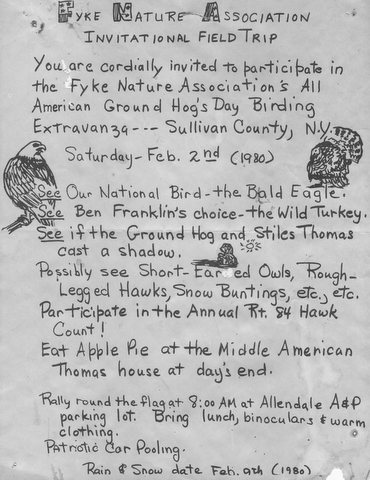 Fyke Nature Association
Invitational Field Trip
You are cordially invited to participate in
the Fyke Nature Association's All
American Ground Hog's Day Birding
Extravanza --- Sullivan County, N.Y.
Saturday - Feb. 2nd (1980)
See Our National Bird - the Bald Eagle.
See Ben Franklin's choice - the Wild Turkey.
See if the Ground Hog and Stiles Thomas
cast a shadow.
Possibly see Short-Eared Owls, Rough-
Legged Hawks, Snow Buntings, etc., etc.
Participate in the Annual Rt. 84 Hawk
Count!
Eat Apple Pie at the Middle American
Thomas house at day's end.
Rally round the flag at 8:00 AM at Allendale A&P
parking lot. Bring lunch, binoculars & warm
clothing.
Patriotic Car Pooling.
Rain & Snow date Feb. 9th (1980)